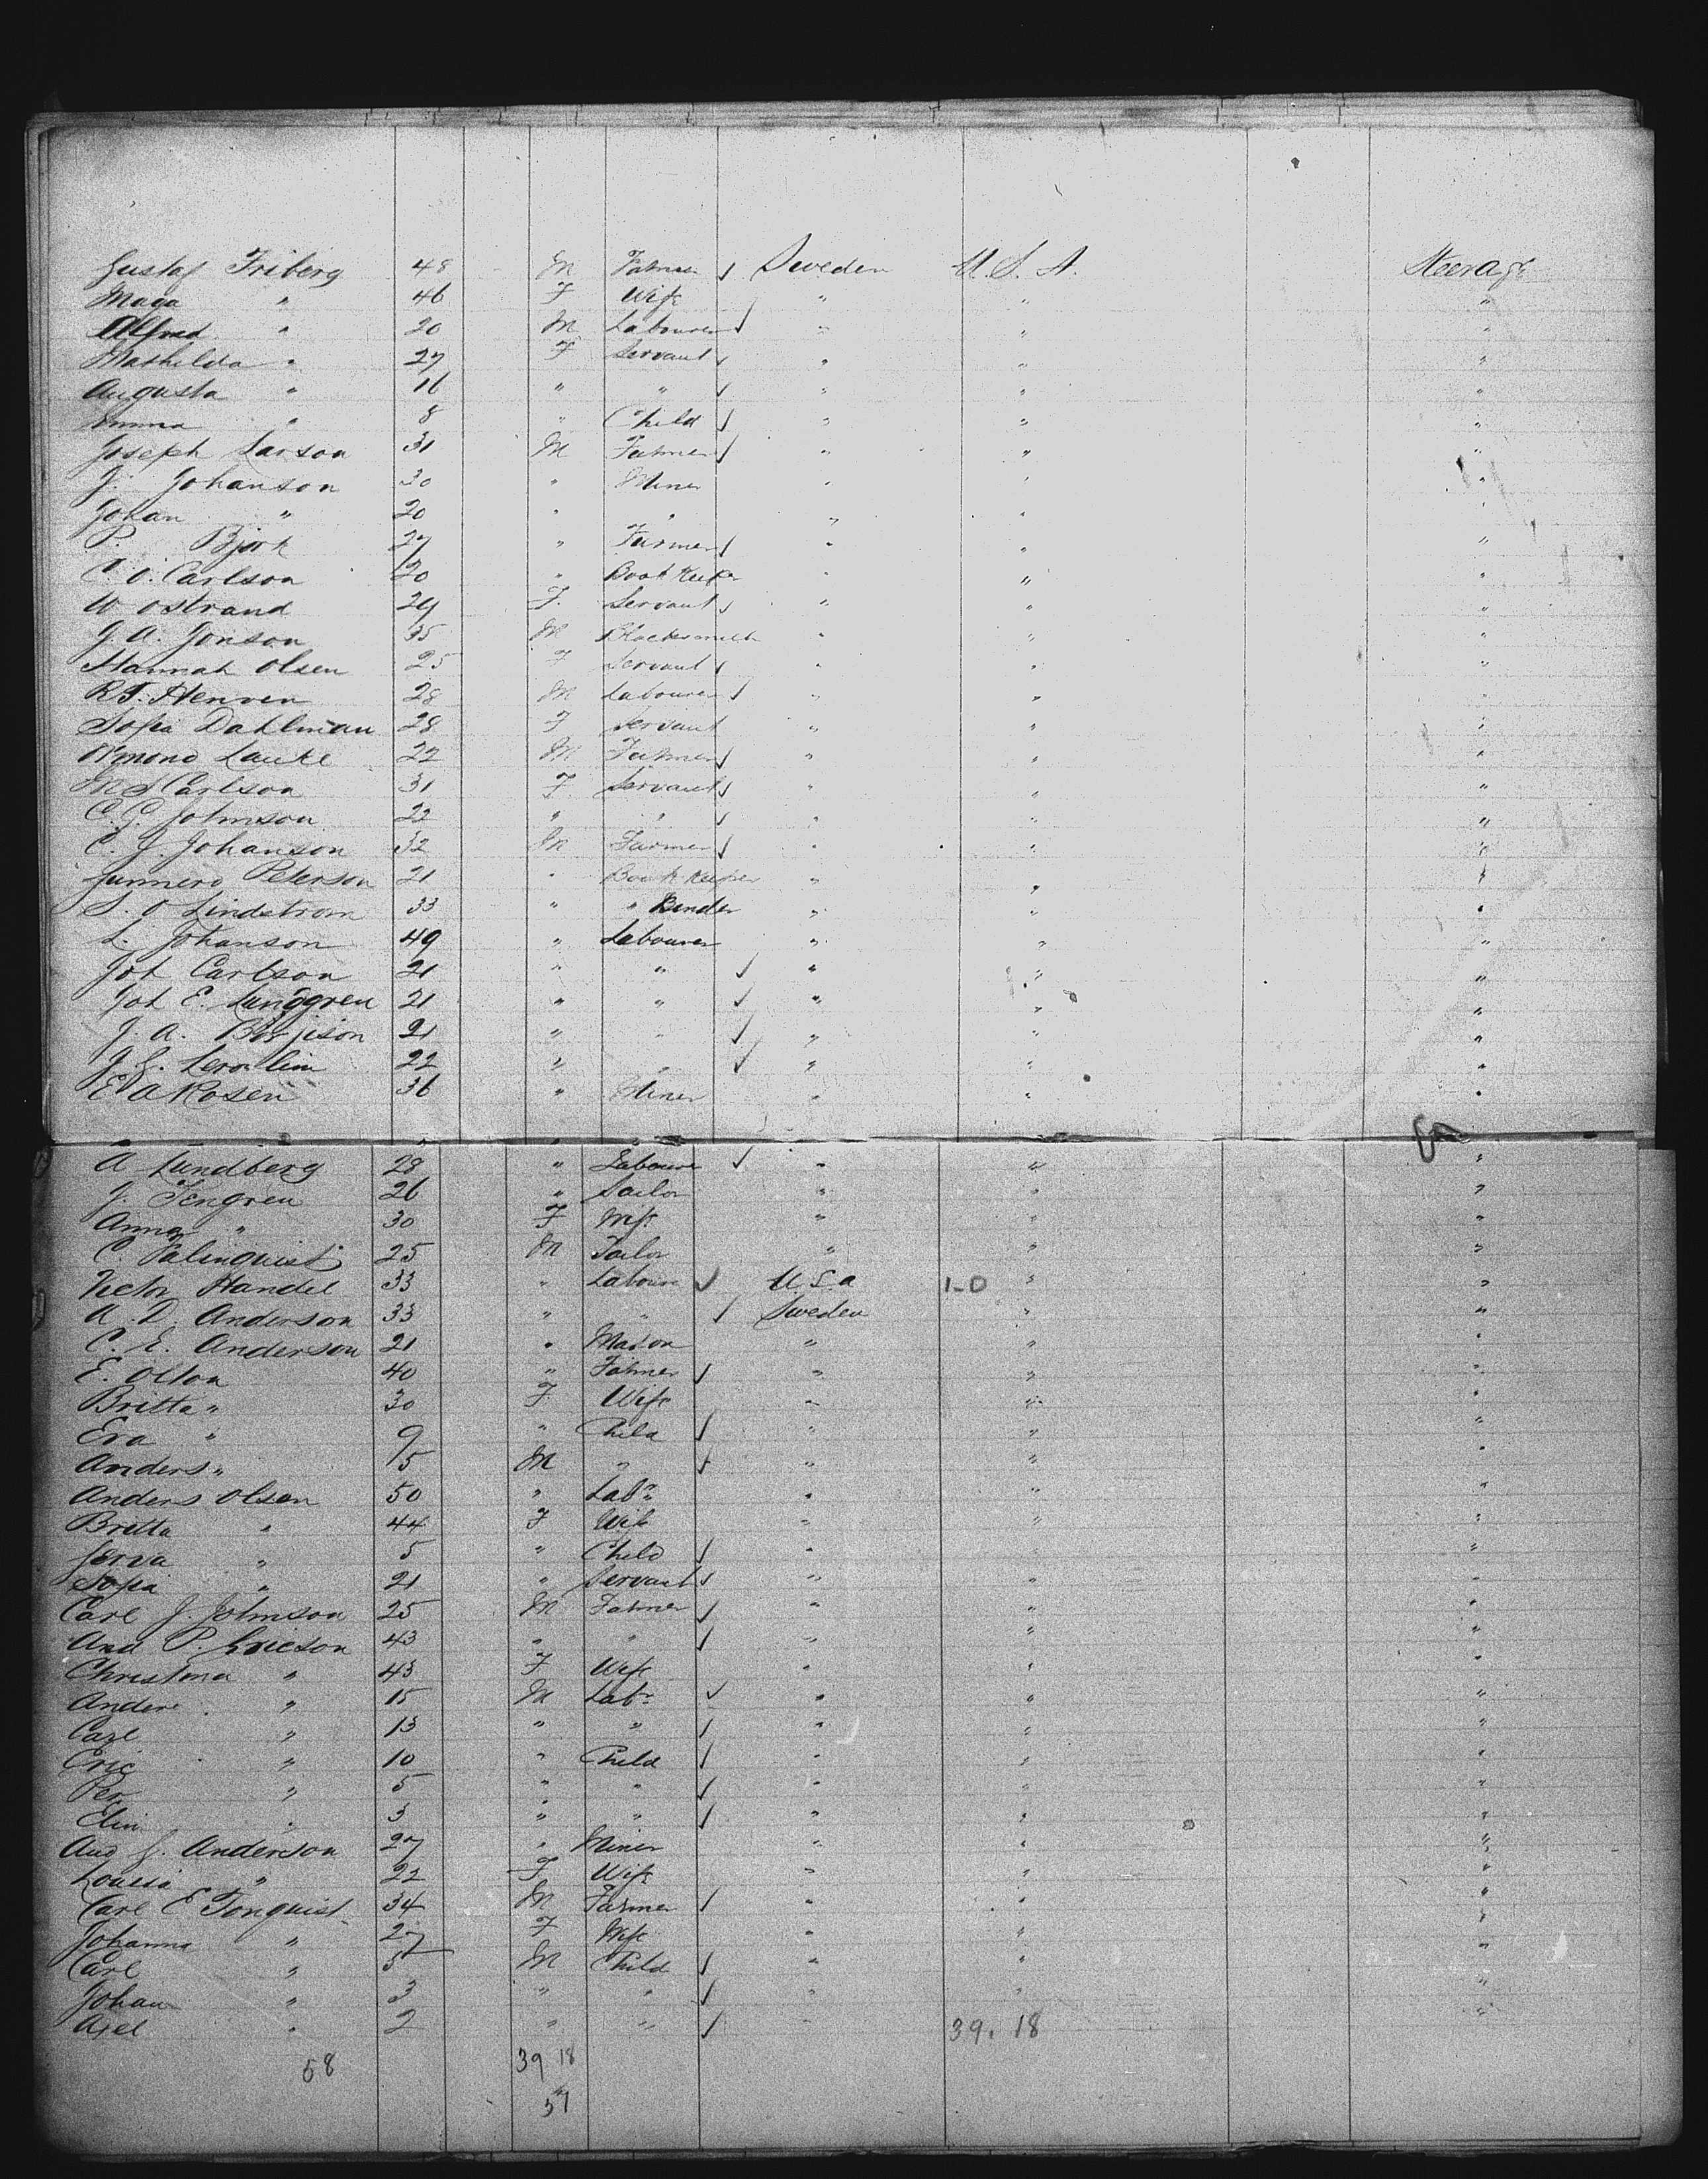 Gustaf Friberg 48 M Farmer ✓ Sweden U.S.A. Steerage
Maga " 46 F Wife " " "
Alfred " 20 M Labourer ✓ " " "
Mathilda " 27 F Servant ✓ " " "
Augusta " 16 " " ✓ " " "
Emma " 8 " Child ✓ " " "
Joseph Larson 31 M Farmer ✓ " " "
J. Johanson 30 " Miner " " "
Johan " 20 " " " " "
P. Bjork 27 " Farmer ✓ " " "
C. O. Carlson 20 " Book Keeper " " "
W Ostrand 29 F. Servant ✓ " " "
J. A. Jonson 35 M Blacksmith " " "
Hannah Olsen 25 F Servant ✓ " " "
28 M Labourer ✓ " " "
Sofia Dahlman 28 F Servant " " "
22 M Farmer ✓ " " "
Carlson 31 F. Servant ✓ " " "
C. G. Johnson 22 " " ✓ " " "
C. J. Johanson 32 M Farmer ✓ " " "
Peterson 21 " Book Keeper " " "
S. O Lindstrom 33 " " Binder " " "
L. Johanson 49 " Labourer " " "
Joh Carlson 21 " " ✓ " " "
Joh E. Lunggren 21 " " ✓ " " "
J. A. 21 " " ✓ " " "
J. G. 22 " " ✓ " " "
E A Rosen 36 " Miner " " "
A Lundberg 28 " Labourer ✓ " " "
J. Tengren 26 " Sailor " " "
Anna " 30 F Wife " " "
C. Palinquist 25 M Tailor " " "
Victor Handel 33 " Labourer ✓ U.S.a 1-0 " "
A. D. Anderson 33 " " ✓ Sweden " "
C. E. Anderson 21 " Mason " " "
E. Olson 40 " Farmer ✓ " " "
Britta " 30 F. Wife " " "
Eva " 9 " Child ✓ " " "
Anders " 5 M " ✓ " " "
Anders Olsen 50 " Labr " " "
Britta " 44 F Wife " " "
" 5 " Child ✓ " "
Sofia " 21 " Servant ✓ " " "
Carl J. Johnson 25 M Farmer ✓ " " "
And P. Ericson 43 " " ✓ " " "
Christina " 43 F Wife " " "
Anders " 15 M Labr ✓ " " "
Carl " 13 " " ✓ " " "
Eric " 10 " Child ✓ " " "
Per " 5 " " ✓ " " "
Elin " 3 " " ✓ " " "
Aug G. Anderson 27 " Miner " " "
Louisa " 22 F Wife " " "
Carl E Tonquist 34 M Farmer ✓ " " "
Johanna " 27 F Wife " " "
Carl " 5 M Child ✓ " " "
Johan " 3 " " ✓ " " "
Axel " 2 " " ✓ " 39. 18 "
58 39 18
57